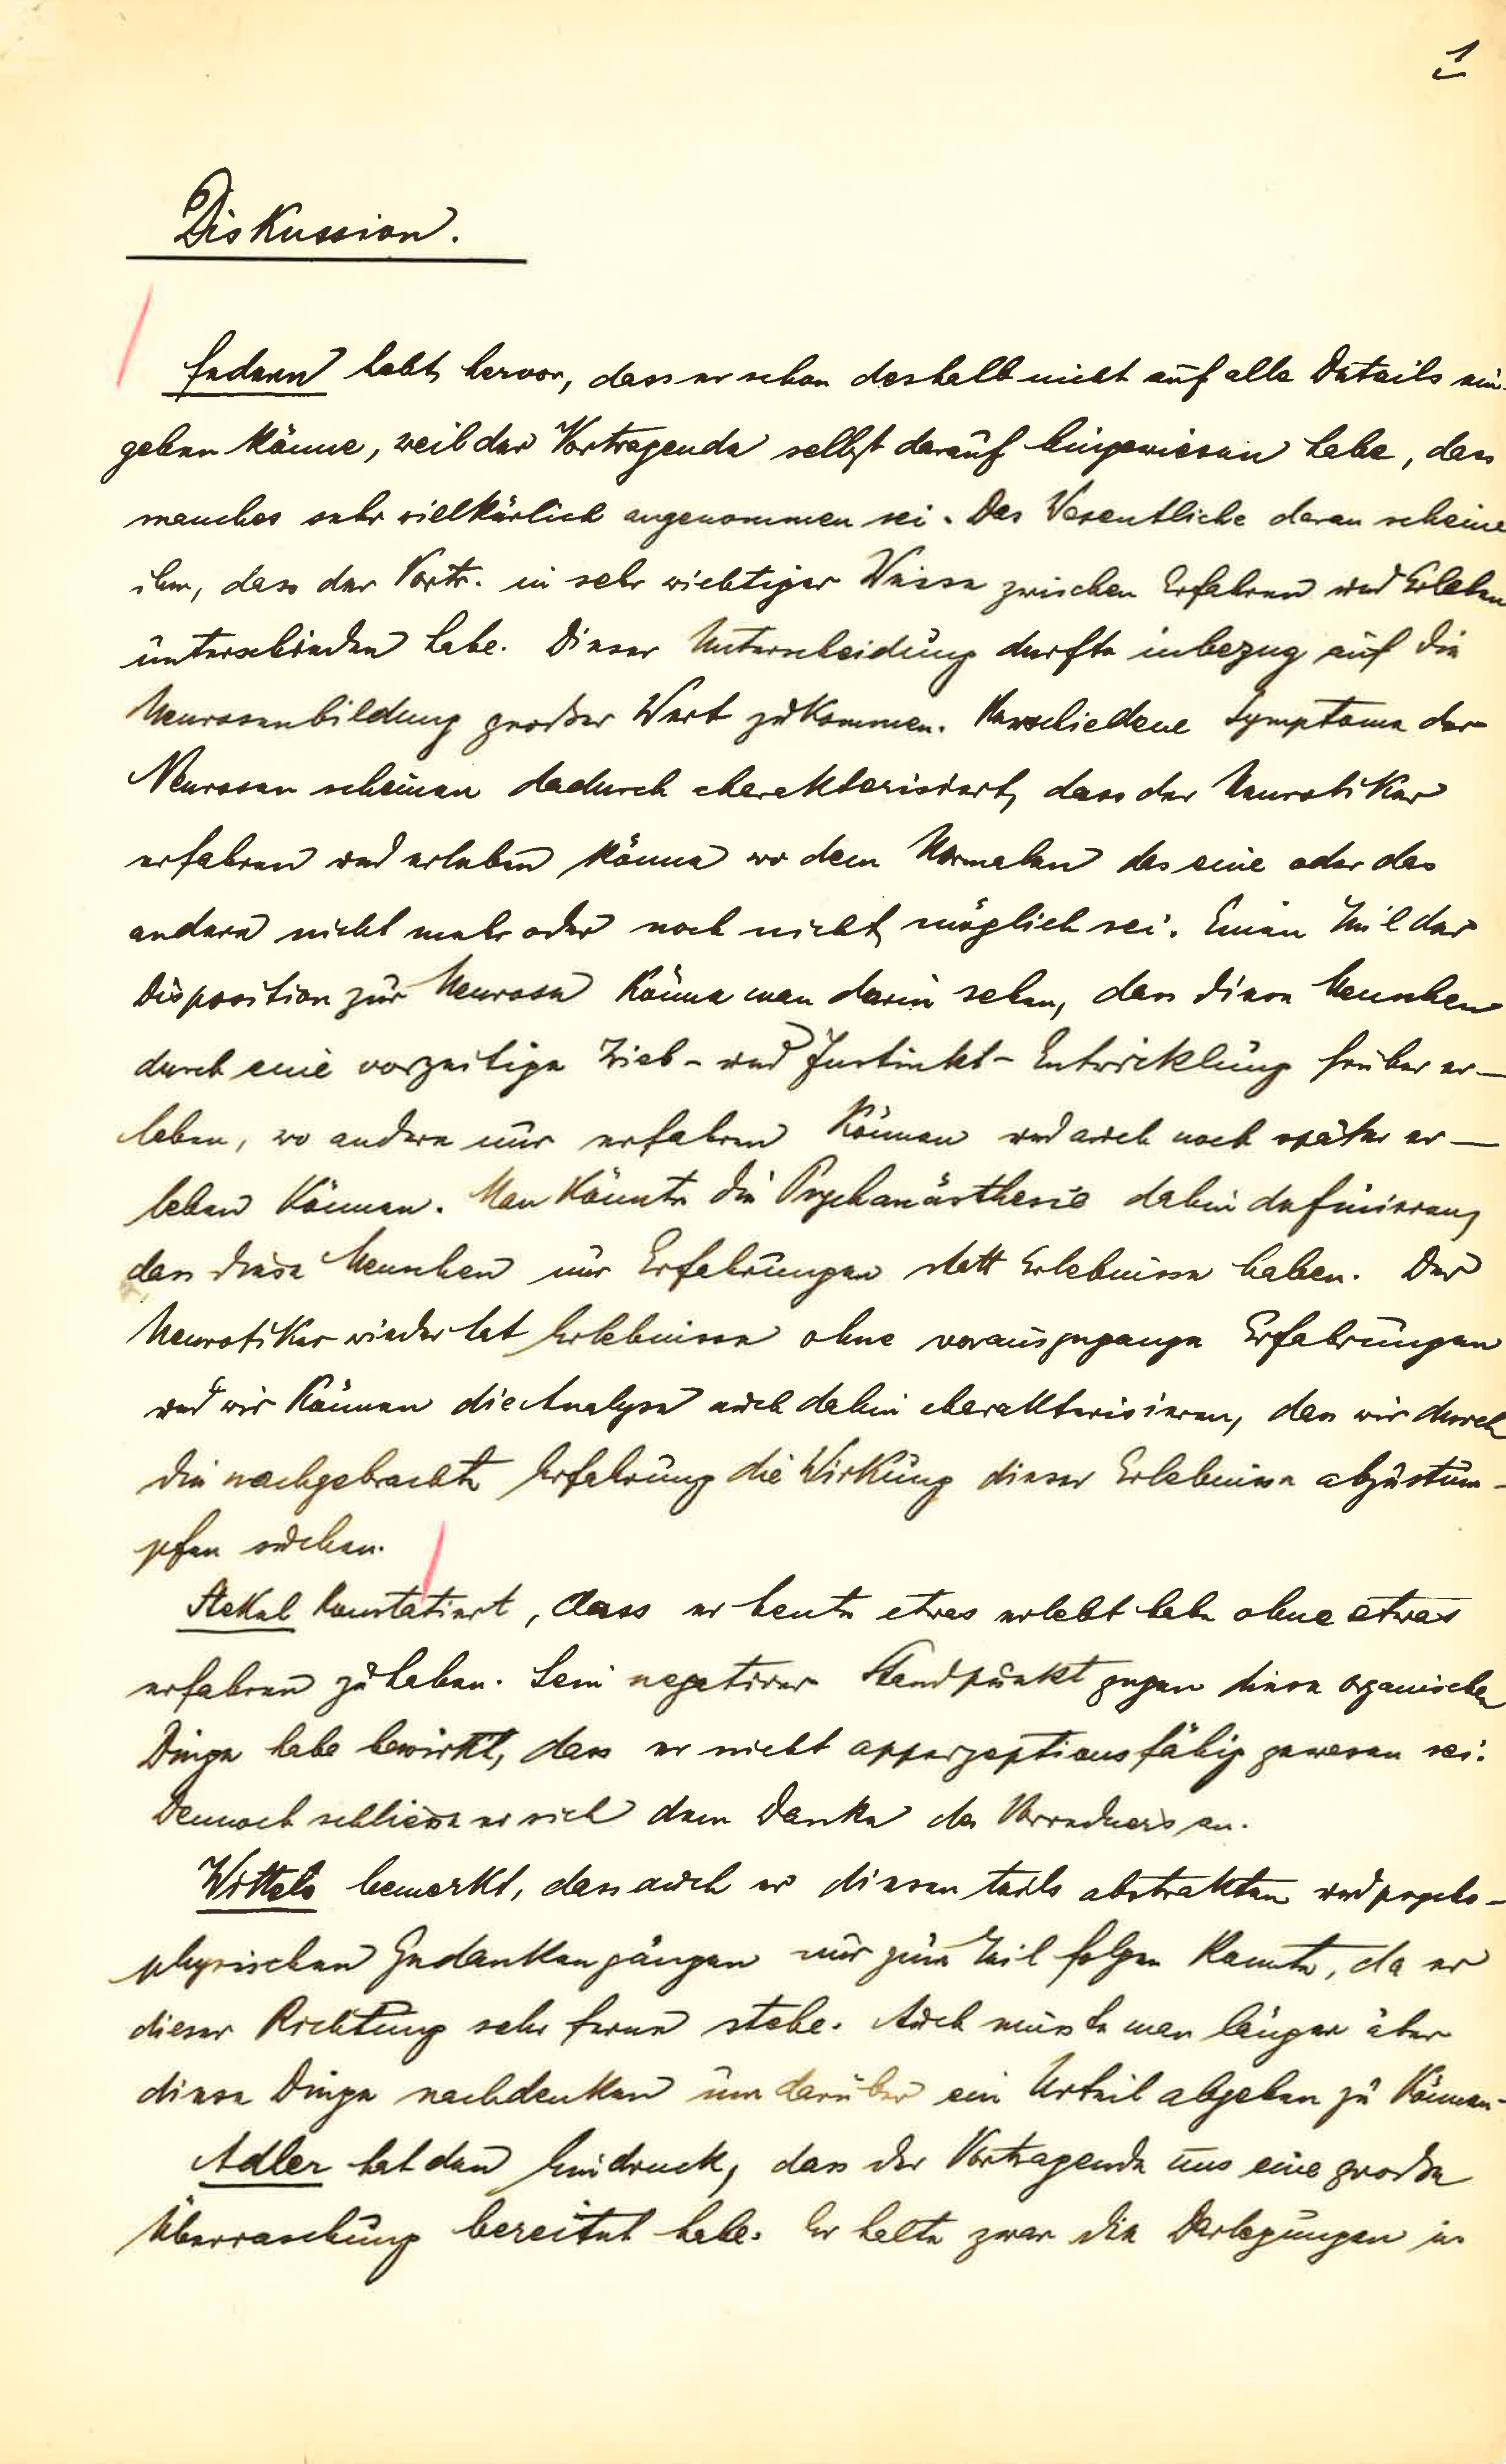 1
Diskussion.
Federn hebt hervor, dass er schon deshalb nicht auf alle Details ein-
gehen könne, weil der Vortragende selbst darauf hingewiesen habe, dass
manches sehr willkürlich angenommen sei. Das Wesentliche daran scheine
ihm, dass der Vortr. in sehr wichtiger Weise zwischen Erfahren und Erleben
unterschieden habe. Dieser Unterscheidung durfte inbezug auf die
Neurosenbildung großer Wert zukommen. Verschiedene Symptome der
Neurosen scheinen dadurch charakterisiert, dass der Neurotiker
erfahren und erleben könne wo dem Normalen das eine oder das
andere nicht mehr oder noch nicht möglich sei. Einen Teil der
Disposition zur Neurose könne man darin sehen, dass diese Menschen
durch eine vorzeitige Trieb- und Instinkt-Entwicklung früher er-
leben, wo andere nur erfahren können und auch noch später er-
leben können. Man könnte die Psychanästhesie dahin definieren,
dass diese Menschen nur Erfahrungen statt Erlebnisse haben. Der
Neurotiker wieder hat Erlebnisse ohne vorausgegange Erfahrungen
und wir können die Analyse auch dahin charakterisieren, dass wir durch
die nachgebrachte Erfahrung die Wirkung dieser Erlebnisse abzustum-
pfen suchen.
Stekel konstatiert, dass er heute etwas erlebt habe ohne etwas
erfahren zu haben. Sein negativer Standpunkt gegen diese organischen
Dinge habe bewirkt, dass er nicht apperzeptionsfähig gewesen sei.
Dennoch schliesse er sich dem Danke des Vorredners an.
Wittels bemerkt, dass auch er diesen teils abstrakten und psycho-
physischen Gedankengängen nur zum Teil folgen konnte, da er
dieser Richtung sehr ferne stehe. Auch müsste man länger über
diese Dinge nachdenken um darüber ein Urteil abgeben zu können.
Adler hat den Eindruck, dass der Vortragende uns eine große
Überraschung bereitet habe. Er halte zwar die Darlegungen in